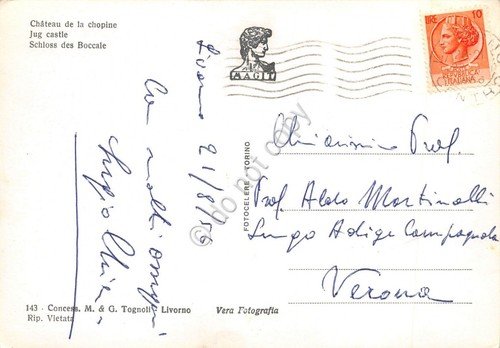 Château de la chopine
Jug castle
Schloss des Boccale
MAGIT
LIRE 10
Livorno 21/8/56
Con molti ossequi
FOTOCELERE TORINO
Chiarissimo Prof.
Prof. Aldo Martinolli
Lungo Adige Campagnola
Verona
143 - Concess. M. & G. Tognoli - Livorno
Rip. Vietata
Vera Fotografia
do not copy